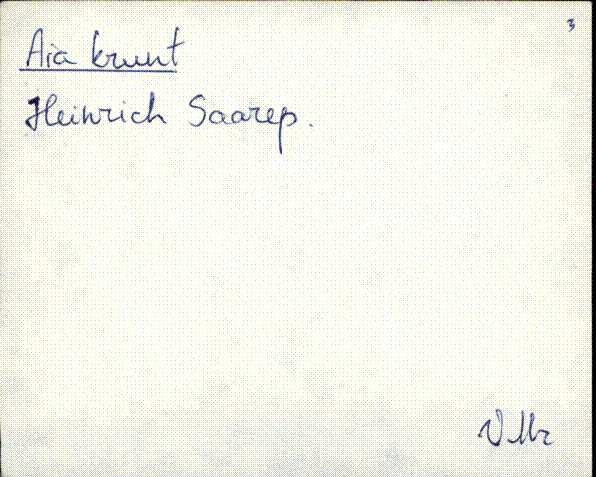 3
Aia krunt
Heinrich Saarep.
VMr